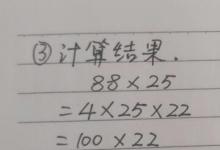 ③计算结果.
88×25
=4×25×22
=100×22